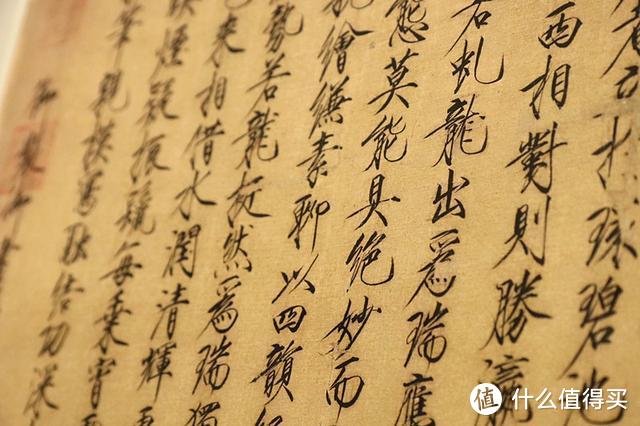 者立於環碧池
西相對則勝瀛
若虬龍出爲瑞應
態莫能具絕妙而
能繪縑素聊以四韻
勢若龍挺然爲瑞獨
來相借水潤清輝
煙疑振鬣每乘宵
筆親模寫融結功深
御製御
值 什么值得买